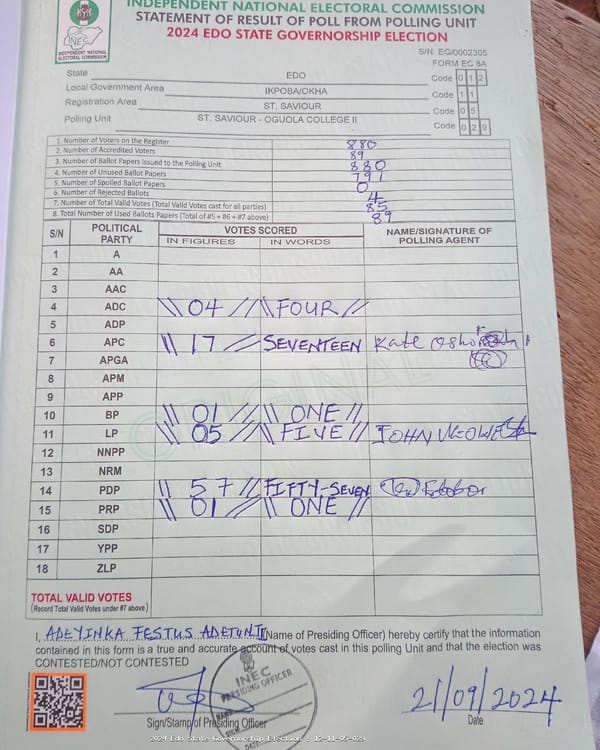 INDEPENDENT NATIONAL ELECTORAL COMMISSION
STATEMENT OF RESULT OF POLL FROM POLLING UNIT
2024 EDO STATE GOVERNORSHIP ELECTION
INEC
INDEPENDENT NATIONAL ELECTORAL COMMISSION
S/N: EG/0002305
FORM EC 8A
State EDO Code 0 1 2
Local Government Area IKPOBA/OKHA Code 1 1
Registration Area ST. SAVIOUR Code 0 5
Polling Unit ST. SAVIOUR - OGUOLA COLLEGE II Code 0 2 9
1. Number of Voters on the Register 880
2. Number of Accredited Voters 89
3. Number of Ballot Papers Issued to the Polling Unit 880
4. Number of Unused Ballot Papers 791
5. Number of Spoiled Ballot Papers 0
6. Number of Rejected Ballots 4
7. Number of Total Valid Votes (Total Valid Votes cast for all parties) 85
8. Total Number of Used Ballots Papers (Total of #5 + #6 + #7 above) 89
S/N POLITICAL PARTY VOTES SCORED NAME/SIGNATURE OF POLLING AGENT
IN FIGURES IN WORDS
1 A
2 AA
3 AAC
4 ADC \\ 04 // \\ FOUR //
5 ADP
6 APC \\ 17 // SEVENTEEN Kate
7 APGA
8 APM
9 APP
10 BP \\ 01 // \\ ONE //
11 LP \\ 05 // \\ FIVE // JOHN
12 NNPP
13 NRM
14 PDP \\ 57 // FIFTY-SEVEN
15 PRP \\ 01 // \\ ONE //
16 SDP
17 YPP
18 ZLP
ORIGINAL
TOTAL VALID VOTES
(Record Total Valid Votes under #7 above)
I, ADEYINKA FESTUS ADETUNJI (Name of Presiding Officer) hereby certify that the information
contained in this form is a true and accurate account of votes cast in this polling Unit and that the election was
CONTESTED/NOT CONTESTED
INEC
PRESIDING OFFICER
DATE
21/09/2024
Sign/Stamp of Presiding Officer Date
2024 Edo State Governorship Election - 12-11-05-029